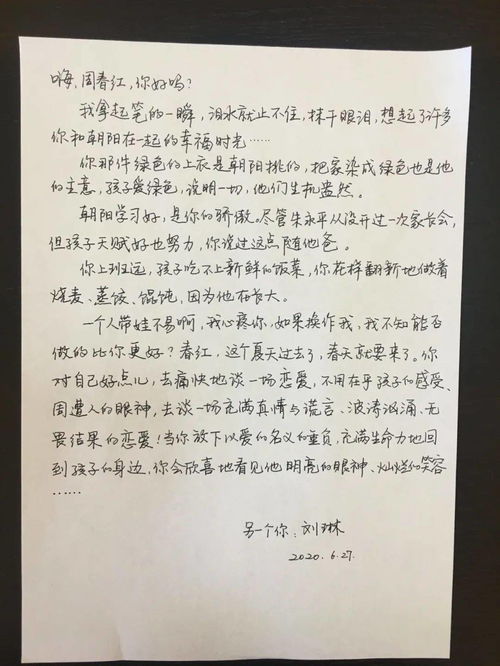 嗨,周春红,你好吗?
我拿起笔的一瞬,泪水就止不住,抹干眼泪,想起了许多
你和朝阳在一起的幸福时光……
你那件绿色的上衣是朝阳挑的,把家染成绿色也是他
的主意,孩子爱绿色,说明一切,他们生机盎然。
朝阳学习好,是你的骄傲。尽管朱永平从没开过一次家长会,
但孩子天赋好也努力,你说过这点随他爸。
你上班远,孩子吃不上新鲜的饭菜,你花样翻新地做着
烧麦、蒸饺、馄饨,因为他在长大。
一个人带娃不易啊,我心疼你,如果换作我,我不知能否
做的比你更好?春红,这个夏天过去了,春天就要来了。你
对自己好点儿,去痛快地谈一场恋爱,不用在乎孩子的感受、
周遭人的眼神,去谈一场充满真情与谎言、波涛汹涌、无
畏结果的恋爱!当你放下以爱的名义的重负,充满生命力地回
到孩子的身边,你会欣喜地看见他明亮的眼神、灿烂的笑容
……
另一个你:刘琳
2020.6.27.